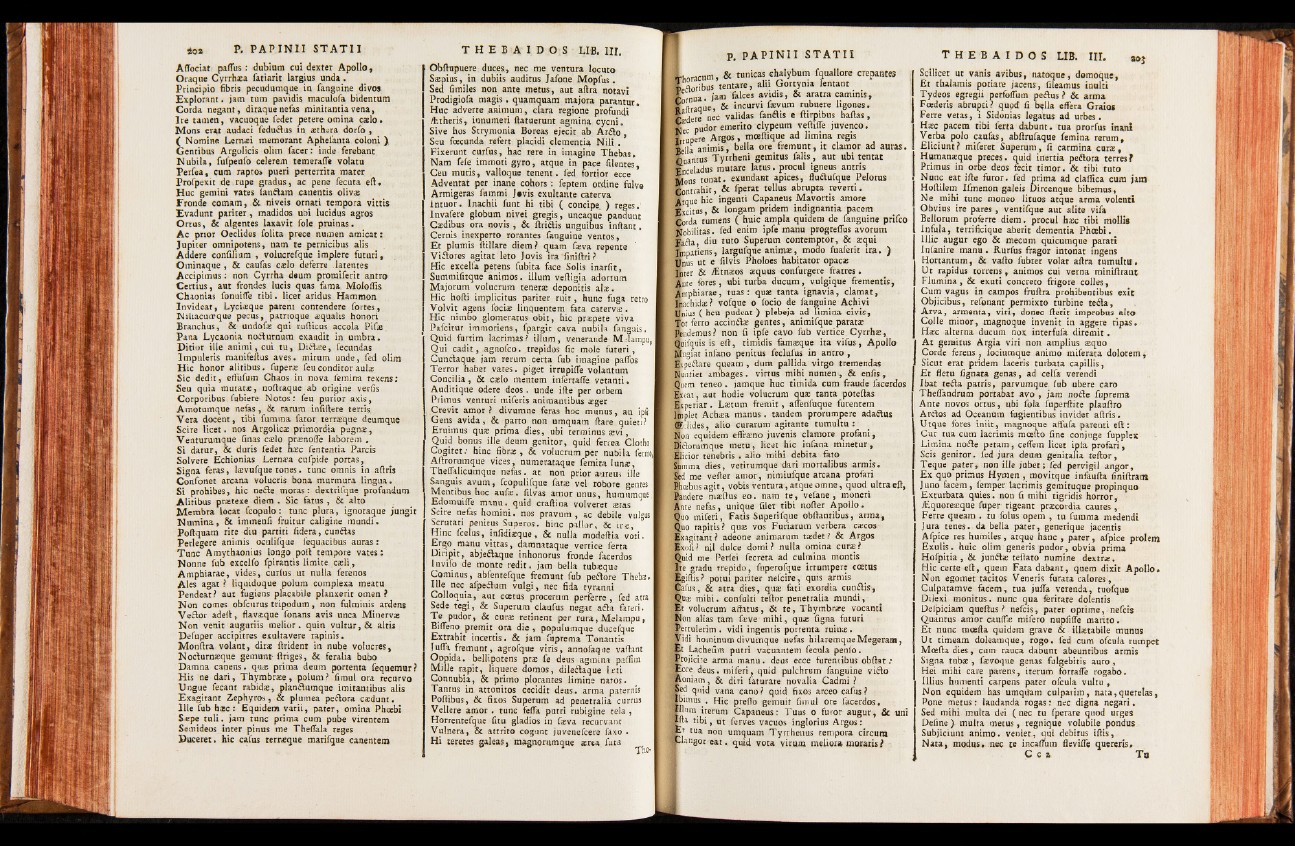 202 P. PAPINII STATII
Affociat paffus : dubium cui dexter Apollo,
Oraque Cyrrhæa fatiarit largius unda.
Principio fibris pecudumque in fanguine divos
Explorant. jam tum pavidis maculofa bidentum
Corda negant, diraque nefas minitantia vena,
Ire tamen, vacuoque fedet petere omina cælo.
Mons erat audaci feductus in æthera dorfo,
( Nomine Lernæi memorant Aphefanta coloni )
Gentibus Argolicis olim facer: inde ferebant
Nubila, fufpenfo celerem temeraffe volatu
Perfea, cum raptos pueri perterrita mater
Profpexit de rupe gradus, ac pene fecuta eft.
Huc gemini vates fanctam canentis olivæ
Fronde comam, & niveis ornati tempora vittis
Evadunt pariter, madidos ubi lucidus agros
Ortus, & algentes laxavit fole pruinas.
Ac prior Oeclides folita prece numen amicat:
Jupiter omnipotens, nam te pernicibus alis
Addere confilium, volucrefque implere futuri,
Ominaque, & caufas cælo deferre latentes
Accipimus: non Cyrrha deum promiferit antro
Certius, aut frondes lucis quas fama Moloffis
Chaonias fonuiffe tibi. licet aridus Hammon
Invideat, Lyciæque parent contendere fortes,
Niliacumque pecus, patrioque æqualis honori
Branchus, & undofæ qui rufticus accola Pifæ
Pana Lycaonia nocturnum exaudit in umbra.
Ditior ille animi, cui tu, Dictæe, fecundas
Impuleris manifeftus aves. mirum unde, fed olim
Hic honor alitibus. fuperæ feu conditor aulæ
Sic dedit, effufum Chaos in nova femina texens:
Seu quia mutatæ, noftraque ab origine verfis
Corporibus fubiere Notos: feu purior axis,
Amotumque nefas, & rarum infiftere terris
Vera docent, tibi fumma fator terræque deumque
Scire licet. nos Argolicæ primordia pugnæ,
Venturumque finas cælo prænoffe laborem.
Si datur, & duris fedet hæc fententia Parcis
Solvere Echionias Lernæa cufpide portas,
Signa feras, lævufque tones. tunc omnis in aftris
Confonet arcana volucris bona murmura lingua.
Si prohibes, hic necte moras: dextrifque profundum
Alitibus prætexe diem. Sic fatus, & alto
Membra locat fcopulo: tunc plura, ignotaque jungit
Numina, & immenfi fruitur caligine mundi.
Poftquam rite diu partiti fidera, cunctas
Perlegere animis oculifque fequacibus auras:
Tunc Amythaonius longo poft tempore vates:
Nonne fub excelfo fpirantis limite cæli,
Amphiarae, vides, curfus ut nulla ferenos
Ales agat? liquidoque polum complexa meatu
Pendeat? aut fugiens placabile planxerit omen?
Non comes obfcurus tripodum, non fulminis ardens
Vector adeft, flavæque fonans avis unca Minervæ
Non venit auguriis melior. quin vultur, & altis
Defuper accipitres exultavere rapinis.
Monftra volant, diræ ftrident in nube volucres,
Nocturnæque gemunt ftriges, & feralia bubo
Damna canens. quæ prima deum portenta fequemur?
His ne dari, Thymbræe, polum? fimul ora recurvo
Ungue fecant rabidæ, planctumque imitantibus alis
Exagitant Zephyros, & plumea pectora cædunt.
Ille fub hæc: Equidem varii, pater, omina Phœbi
Sæpe tuli. jam tunc prima cum pube virentem
Semideos inter pinus me Theffala reges
Duceret. hic cafus terræque marifque canentem
THEBAIDOS LIB. III.
Obftupuere duces, nec me ventura locuto
Sæpius, in dubiis auditus Jafone Mopfus.
Sed fimiles non ante metus, aut aftra notavi
Prodigiofa magis. quamquam majora parantur.
Huc adverte animum, clara regione profundi
Ætheris, innumeri ftatuerunt agmina cycni.
Sive hos Strymonia Boreas ejecit ab Arcto,
Seu fœcunda refert placidi clementia Nili.
Fixerunt curfus, hac rere in imagine Thebas.
Nam fefe immoti gyro, atque in pace filentes,
Ceu mutis, valloque tenent. fed fortior ecce
Adventat per inane cohors: feptem ordine fulvo
Armigeras fummi Jovis exultante caterva
Intuor. Inachii funt hi tibi ( concipe ) reges.
Invafere globum nivei gregis, uncaque pandunt
Cædibus ora novis, & ftrictis unguibus inftant.
Cernis inexperto rorantes fanguine ventos,
Et plumis ftillare diem? quam fæva repente
Victores agitat leto Jovis ira finiftri?
Hic excelfa petens fubita face Solis inarfit,
Summifitque animos. illum veftigia adortum
Majorum volucrum teneræ deponitis alæ.
Hic hofti implicitus pariter ruit, hunc fuga retro
Volvit agens fociæ linquentem fata catervæ.
Hic nimbo glomeratus obit, hic præpete viva
Pafcitur immoriens, fpargit cava nubila fanguis.
Quid furtim lacrimas? illum, venerande Melampu,
Qui cadit, agnofco. trepidos fic mole futuri,
Cunctaque jam rerum certa fub imagine paffos
Terror habet vates. piget irrupiffe volantum
Concilia, & cælo mentem infertaffe vetanti.
Auditique odere deos. unde ifte per orbem
Primus venturi miferis animantibus æger
Crevit amor? divumne feras hoc munus, an ipfi
Gens avida, & parto non umquam ftare quieti?
Eruimus quæ prima dies, ubi terminus ævi,
Quid bonus ille deum genitor, quid ferrea Clotho
Cogitet. hinc fibræ, & volucrum per nubila fermo,
Aftrorumque vices, numerataque femita lunæ,
Theffalicumque nefas. at non prior aureus ille
Sanguis avum, fcopulifque fatæ vel robore gentes
Mentibus hoc aufæ. filvas amor unus, humumque
Edomuiffe manu. quid craftina volveret ætas
Scire nefas homini. nos pravum, ac debile vulgus
Scrutari penitus Superos. hinc pallor, & iræ,
Hinc fcelus, infidiæque, & nulla modeftia voti.
Ergo manu vittas, damnataque vertice ferta
Diripit, abjectaque inhonorus fronde facerdos
Invifo de monte redit. jam bella tubæque
Cominus, abfentefque fremunt fub pectore Thebæ.
Ille nec afpectum vulgi, nec fida tyranni
Colloquia, aut cœtus procerum perferre, fed atra
Sede tegi, & Superum claufus negat acta fateri.
Te pudor, & curæ retinent per rura, Melampu,
Biffeno premit ora die, populumque ducefque
Extrahit incertis. & jam fuprema Tonantis
Juffa fremunt, agrofque viris, annofaque vaftant
Oppida. bellipotens præ fe deus agmina paffim
Mille rapit, liquere domos, dilectaque læti
Connubia, & primo plorantes limine natos.
Tantus in attonitos cecidit deus. arma paternis
Poftibus, & fixos Superum ad penetralia currus
Vellere amor. tunc feffa putri rubigine tela,
Horrentefque fitu gladios in fæva recurvant
Vulnera, & attrito cogunt juvenefcere faxo.
Hi teretes galeas, magnorumque ærea futa
Tho-
P. PAPINII STATII
Thoracum, & tunicas chalybum fquallore crepantes
Pectoribus tentare, alii Gortynia lentant
Cornua. jam falces avidis, & aratra caminis,
Raftraque, & incurvi fævum rubuere ligones.
Cædere nec validas fanctis e ftirpibus haftas,
Nec pudor emerito clypeum veftiffe juvenco.
Irrupere Argos, mœftique ad limina regis
Bella animis, bella ore fremunt, it clamor ad auras.
Quantus Tyrrheni gemitus falis, aut ubi tentat
Enceladus mutare latus. procul igneus antris
Mons tonat. exundant apices, fluctufque Pelorus
Contrahit, & fperat tellus abrupta reverti.
Atque hic ingenti Capaneus Mavortis amore
Excitus, & longam pridem indignantia pacem
Corda tumens ( huic ampla quidem de fanguine prifco
Nobilitas. fed enim ipfe manu progreffus avorum
Facta, diu tuto Superum contemptor, & æqui
Impatiens, largufque animæ, modo fuaferit ira. )
Unus ut e filvis Pholoes habitator opacæ
Inter & Ætnæos æquus confurgere fratres.
Ante fores, ubi turba ducum, vulgique frementis,
Amphiarae, tuas: quæ tanta ignavia, clamat,
Inachidæ? vofque o focio de fanguine Achivi
Unius ( heu pudeat ) plebeja ad limina civis,
Tot ferro accinctæ gentes, animifque paratæ
Pendemus? non fi ipfe cavo fub vertice Cyrrhæ,
Quifquis is eft, timidis famæque ita vifus, Apollo
Mugiat infano penitus feclufus in antro,
Expectare queam, dum pallida virgo tremendas
Nuntiet ambages. virtus mihi numen, & enfis,
Quem teneo. jamque huc timida cum fraude facerdos
Exeat, aut hodie volucrum quæ tanta poteftas
Experiar. Lætum fremit, affenfuque furentem
Implet Achæa manus. tandem prorumpere adactus
Œclides, alio curarum agitante tumultu:
Non equidem effræno juvenis clamore profani,
Dictorumque metu, licet hic infana minetur,
Elicior tenebris. alio mihi debita fato
Summa dies, vetitumque dari mortalibus armis.
Sed me vefter amor, nimiufque arcana profari
Phœbus agit, vobis ventura, atque omne, quod ultra eft,
Pandere mæftus eo. nam te, vefane, moneri
Ante nefas, unique filet tibi nofter Apollo.
Quo miferi, Fatis Superifque obftantibus, arma,
Quo rapitis? quæ vos Furiarum verbera cæcos
Exagitant? adeone animarum tædet? & Argos
Exofi? nil dulce domi? nulla omina curæ?
Quid me Perfei fecreta ad culmina montis
Ire gradu trepido, fuperofque irrumpere cœtus
Egiftis? potui pariter nefcire, quis armis
Cafus, & atra dies, quæ fati exordia cunctis,
Quæ mihi. confulti teftor penetralia mundi,
Et volucrum affatus, & te, Thymbræe vocanti
Non alias tam fæve mihi, quæ figna futuri
Pertulerim. vidi ingentis portenta ruinæ.
Vidi hominum divumque nefas hilaremque Megeram,
Et Lachefim putri vacuantem fecula penfo.
Projicite arma manu. deus ecce furentibus obftat:
Ecce deus. miferi, quid pulchrum fanguine victo
Aoniam, & diri faturare novalia Cadmi?
Sed quid vana cano? quid fixos arceo cafus?
Ibimus. Hic preffo gemuit fimul ore facerdos.
Illum iterum Capaneus: Tuus o furor augur, & uni
Ifta tibi, ut ferves vacuos inglorius Argos:
Et tua non umquam Tyrrhenus tempora circum
Clangor eat. quid vota virum meliora moraris?
THEBAIDOS LIB. III. 203
Scilicet ut vanis avibus, natoque, domoque,
Et thalamis potiare jacens, fileamus inulti
Tydeos egregii perfoffum pectus? & arma
Fœderis abrupti? quod fi bella effera Graios
Ferre vetas, i Sidonias legatus ad urbes.
Hæc pacem tibi ferta dabunt. tua prorfus inani
Verba polo caufas, abftrufaque femina rerum,
Eliciunt? miferet Superum, fi carmina curæ,
Humanæque preces. quid inertia pectora terres?
Primus in orbe deos fecit timor. & tibi tuto
Nunc eat ifte furor. fed prima ad claffica cum jam
Hoftilem Ifmenon galeis Dircenque bibemus,
Ne mihi tunc moneo lituos atque arma volenti
Obvius ire pares, ventifque aut alite vifa
Bellorum proferre diem. procul hæc tibi mollis
Infula, terrificique aberit dementia Phœbi.
Illic augur ego & mecum quicumque parati
Infanire manu. Rurfus fragor intonat ingens
Hortantum, & vafto fubter volat aftra tumultu.
Ut rapidus torrens, animos cui verna miniftrant
Flumina, & exuti concreto frigore colles,
Cum vagus in campos fruftra prohibentibus exit
Objicibus, refonant permixto turbine tecta,
Arva, armenta, viri, donec fterit improbus alto
Colle minor, magnoque invenit in aggere ripas.
Hæc alterna ducum nox interfufa diremit.
At gemitus Argia viri non amplius æquo
Corde ferens, fociumque animo miferata dolorem,
Sicut erat pridem laceris turbata capillis,
Et fletu fignata genas, ad celfa verendi
Ibat tecta patris, parvumque fub ubere caro
Theffandrum portabat avo, jam nocte fuprema
Ante novos ortus, ubi fola fuperftite plauftro
Arctos ad Oceanum fugientibus invidet aftris.
Utque fores iniit, magnoque affufa parenti eft:
Cur tua cum lacrimis mœfto fine conjuge fupplex
Limina nocte petam, ceffem licet ipfa profari,
Scis genitor. fed jura deum genitalia teftor,
Teque pater, non ille jubet; fed pervigil angor,
Ex quo primus Hymen, movitque infaufta finiftram
Juno facem, femper lacrimis gemituque propinquo
Exturbata quies. non fi mihi tigridis horror,
Æquoreæque fuper rigeant præcordia cautes,
Ferre queam. tu folus opem, tu fumma medendi
Jura tenes. da bella pater, generifque jacentis
Afpice res humiles, atque hanc, pater, afpice prolem
Exulis. huic olim generis pudor, obvia prima
Hofpitia, & junctæ teftato numine dextræ.
Hic certe eft, quem Fata dabant, quem dixit Apollo.
Non egomet tacitos Veneris furata calores,
Culpatamve facem, tua juffa verenda, tuofque
Dilexi monitus. nunc qua feritate dolentis
Defpiciam queftus? nefcis, pater optime, nefcis
Quantus amor cauffæ mifero nupfiffe marito.
Et nunc mœfta quidem grave & illætabile munus
Ut timeam doleamque, rogo. fed cum ofcula rumpet
Mœfta dies, cum rauca dabunt abeuntibus armis
Signa tubæ, fævoque genas fulgebitis auro,
Hei mihi care parens, iterum forfaffe rogabo.
Illius humenti carpens pater ofcula vultu,
Non equidem has umquam culparim, nata, querelas,
Pone metus: laudanda rogas: nec digna negari.
Sed mihi multa dei ( nec tu fperare quod urges
Define ) multa metus, regnique volubile pondus
Subjiciunt animo. veniet, qui debitus iftis,
Nata, modus. nec te incaffum fleviffe quereris.
C c 2 Tu